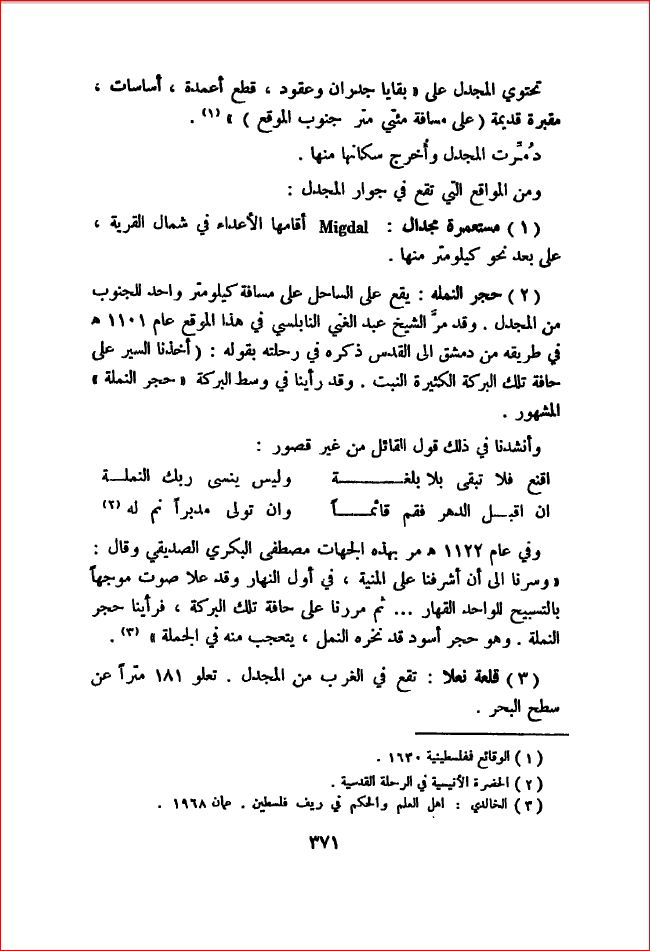 تحتوي المجدل على « بقايا جدران وعقود ، قطع أعمدة ، أساسات ،
مقبرة قديمة ( على مسافة مئتي متر جنوب الموقع ) » (١) .
دُمِّرت المجدل وأُخرج سكانها منها .
ومن المواقع التي تقع في جوار المجدل :
( ١ ) مستعمرة مجدال : Migdal أقامها الأعداء في شمال القرية ،
على بعد نحو كيلومتر منها .
( ٢ ) حجر النمله : يقع على الساحل على مسافة كيلومتر واحد للجنوب
من المجدل . وقد مرَّ الشيخ عبد الغني النابلسي في هذا الموقع عام ١١٠١ ه
في طريقه من دمشق الى القدس ذكره في رحلته بقوله : ( أخذنا السير على
حافة تلك البركة الكثيرة النبت . وقد رأينا في وسط البركة « حجر النملة »
المشهور .
وأنشدنا في ذلك قول القائل من غير قصور :
اقنع فلا تبقى بلا بلغـــــــة وليس ينسى ربك النملـــة
ان اقبـــل الدهر فقم قائمـــــاً وان تولى مدبراً نم له (٢)
وفي عام ١١٢٢ ه مر بهذه الجهات مصطفى البكري الصديقي وقال :
« وسرنا الى أن أشرفنا على المنية ، في أول النهار وقد علا صوت موجهاً
بالتسبيح للواحد القهار ... ثم مررنا على حافة تلك البركة ، فرأينا حجر
النملة . وهو حجر أسود قد نخره النمل ، يتعجب منه في الجملة » (٣) .
( ٣ ) قلعة نعلا : تقع في الغرب من المجدل . تعلو ١٨١ متراً عن
سطح البحر .
( ١ ) الوقائع ففلسطينية ١٦٣٠ .
( ٢ ) الحضرة الأنيسية في الرحلة القدسية .
( ٣ ) الخالدي : اهل العلم والحكم في ريف فلسطين . عمان ١٩٦٨ .
٣٧١